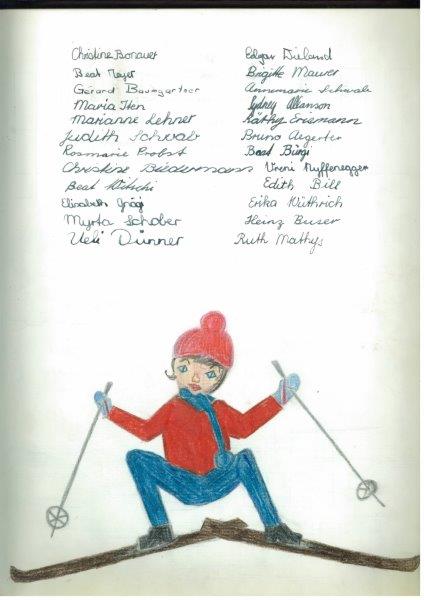 Christine Bonauer
Beat Meyer
Gérard Baumgartner
Maria Iten
Marianne Lehner
Judith Schwab
Rosmarie Probst
Christine Biedermann
Beat Witschi
Elisabeth Grägi
Myrta Schober
Ueli Dünner
Edgar Wieland
Brigitte Maurer
Annemarie Schwab
Sydney Allanson
Käthy Eriemann
Bruno Aegerter
Beat Bürgi
Vreni Nyffenegger
Edith Bill
Erika Wüthrich
Heinz Buser
Ruth Mathys